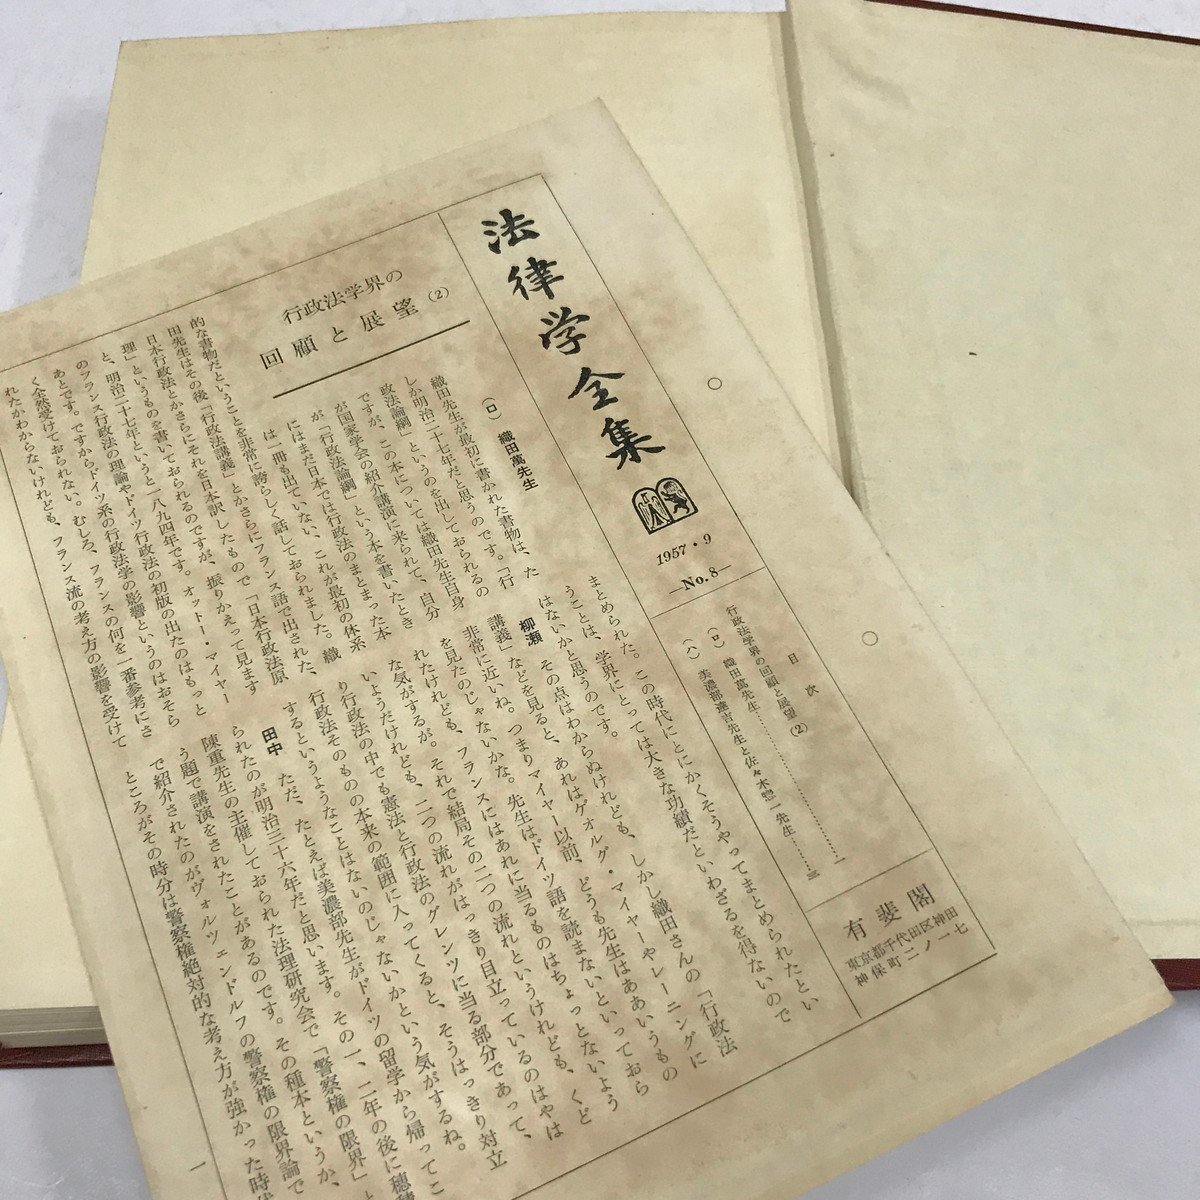 法律学全集
1957・9
—No.8—
目次
行政法学界の回顧と展望(2)
(ロ) 織田萬先生……………一
(ハ) 美濃部達吉先生と佐々木惣一先生……三
有斐閣
東京都千代田区神田
神保町二ノ一七
行政法学界の
回顧と展望(2)
(ロ) 織田萬先生
織田先生が最初に書かれた書物は、た
しか明治二十七年だと思うのです。「行
政法論綱」というのを出しておられるの
ですが、この本については織田先生自身
が国家学会の紹介講演に来られて、自分
が「行政法論綱」という本を書いたとき
にはまだ日本では行政法のまとまった本
は一冊も出ていない、これが最初の体系
的な書物だということを非常に誇らしく話しておられました。織
田先生はその後「行政法講義」とかさらにフランス語で出された、
日本行政法とかさらにそれを日本訳したもので「日本行政法原
理」というものを書いておられるのですが、振りかえって見ます
と、明治二十七年というと一八九四年です。オットー・マイヤー
のフランス行政法の理論やドイツ行政法の初版の出たのはもっと
あとです。ですからドイツ系の行政法学の影響というのはおそら
く全然受けておられない。むしろ、フランスの何を一番参考にさ
れたかわからないけれども、フランス流の考え方の影響を受けて
まとめられた。この時代にとにかくそうやってまとめられたとい
うことは、学界にとっては大きな功績だといわざるを得ないので
はないかと思うのです。
柳瀬 その点はわからぬけれども、しかし織田さんの「行政法
講義」などを見ると、あれはゲオルグ・マイヤーやレーニングに
非常に近いね。つまりマイヤー以前、どうも先生はああいうもの
を見たのじゃないかな。先生はドイツ語を読まないといっておら
れたけれども、フランスにはあれに当るものはちょっとないよう
な気がするが。それで結局その二つの流れというけれども、くど
いようだけれども、二つの流れがはっきり目立っているのはやは
り行政法の中でも憲法と行政法のグレンツに当る部分であって、
行政法そのものの本来の範囲に入ってくると、そうはっきり対立
するというようなことはないのじゃないかという気がするね。
田中 ただ、たとえば美濃部先生がドイツの留学から帰ってこ
られたのが明治三十六年だと思います。その一、二年の後に穂積
陳重先生の主催しておられた法理研究会で「警察権の限界」と
う題で講演をされたことがあるのです。その種本というか、
で紹介されたのがヴォルツェンドルフの警察権の限界論で
ところがその時分は警察権絶対的な考え方が強かった時代
一